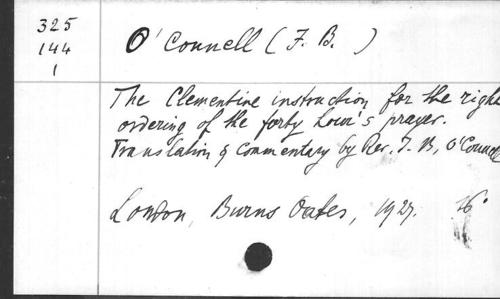 325
144
1
O'Connell (J. B. )
The Clementine instruction for the right
ordering of the forty hour's prayer.
Translation & commentary by Rev. J. B. O'Connell
London, Burns Oates, 1927. 16°